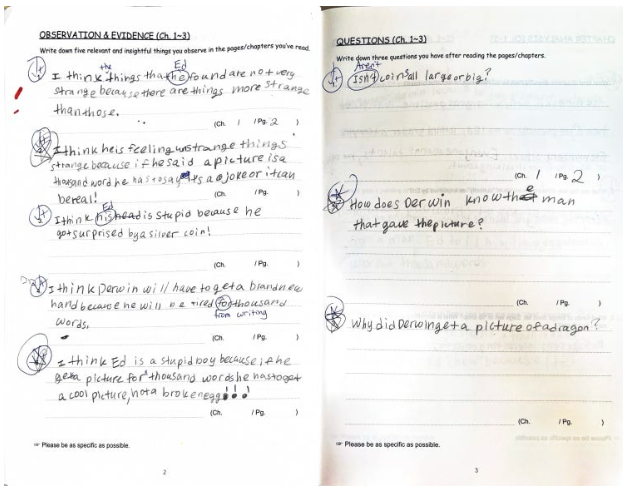 OBSERVATION & EVIDENCE (Ch. 1~3)
Write down five relevant and insightful things you observe in the pages/chapters you've read.
the Ed
I think things that he found are not very
strange because there are things more strange
than those.
(Ch. 1 /Pg. 2 )
I think he is feeling unstrange things
strange because if he said a picture is a
thousand word he has to say it's a joke or it can
be real!
(Ch. /Pg. )
Ed
I think his head is stupid because he
got surprised by a silver coin!
(Ch. /Pg. )
I think Derwin will have to get a brand new
hand because he will be tired for thousand
from writing
words.
(Ch. /Pg. )
I think Ed is a stupid boy because if he
get a picture for thousand words he has to get
a cool picture, not a broken egg!!!
(Ch. /Pg. )
☞ Please be as specific as possible.
2
QUESTIONS (Ch. 1~3)
Write down three questions you have after reading the pages/chapters.
Aren't
Isn't coins all large or big?
(Ch. 1 /Pg. 2 )
How does Derwin know the man
that gave the picture?
(Ch. /Pg. )
Why did Derwin get a picture of a dragon?
(Ch. /Pg. )
☞ Please be as specific as possible.
3